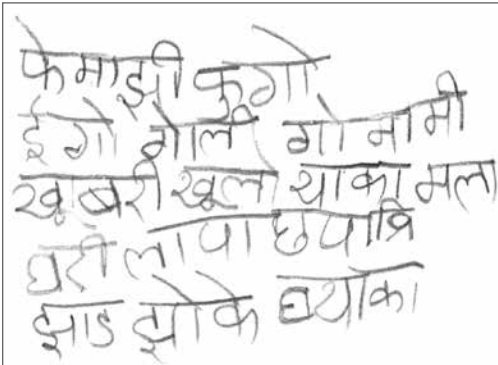 फेमाझी कुगो
ईगो गोली गोनामी
खुबरी खुलो याका मला
घरी लापा छपात्रि
झाड झोके घयोका